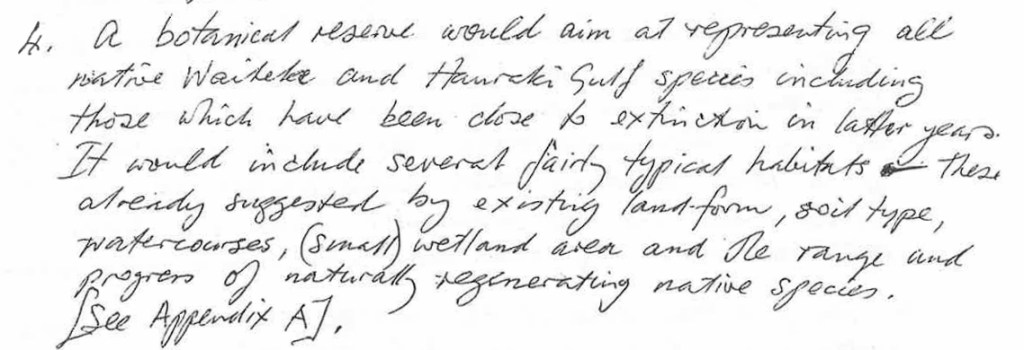 4. A botanical reserve would aim at representing all
native Waiheke and Hauraki Gulf species including
those which have been close to extinction in latter years.
It would include several fairly typical habitats – these
already suggested by existing land-form, soil type,
watercourses, (small) wetland area and the range and
progress of naturally regenerating native species.
[See Appendix A].